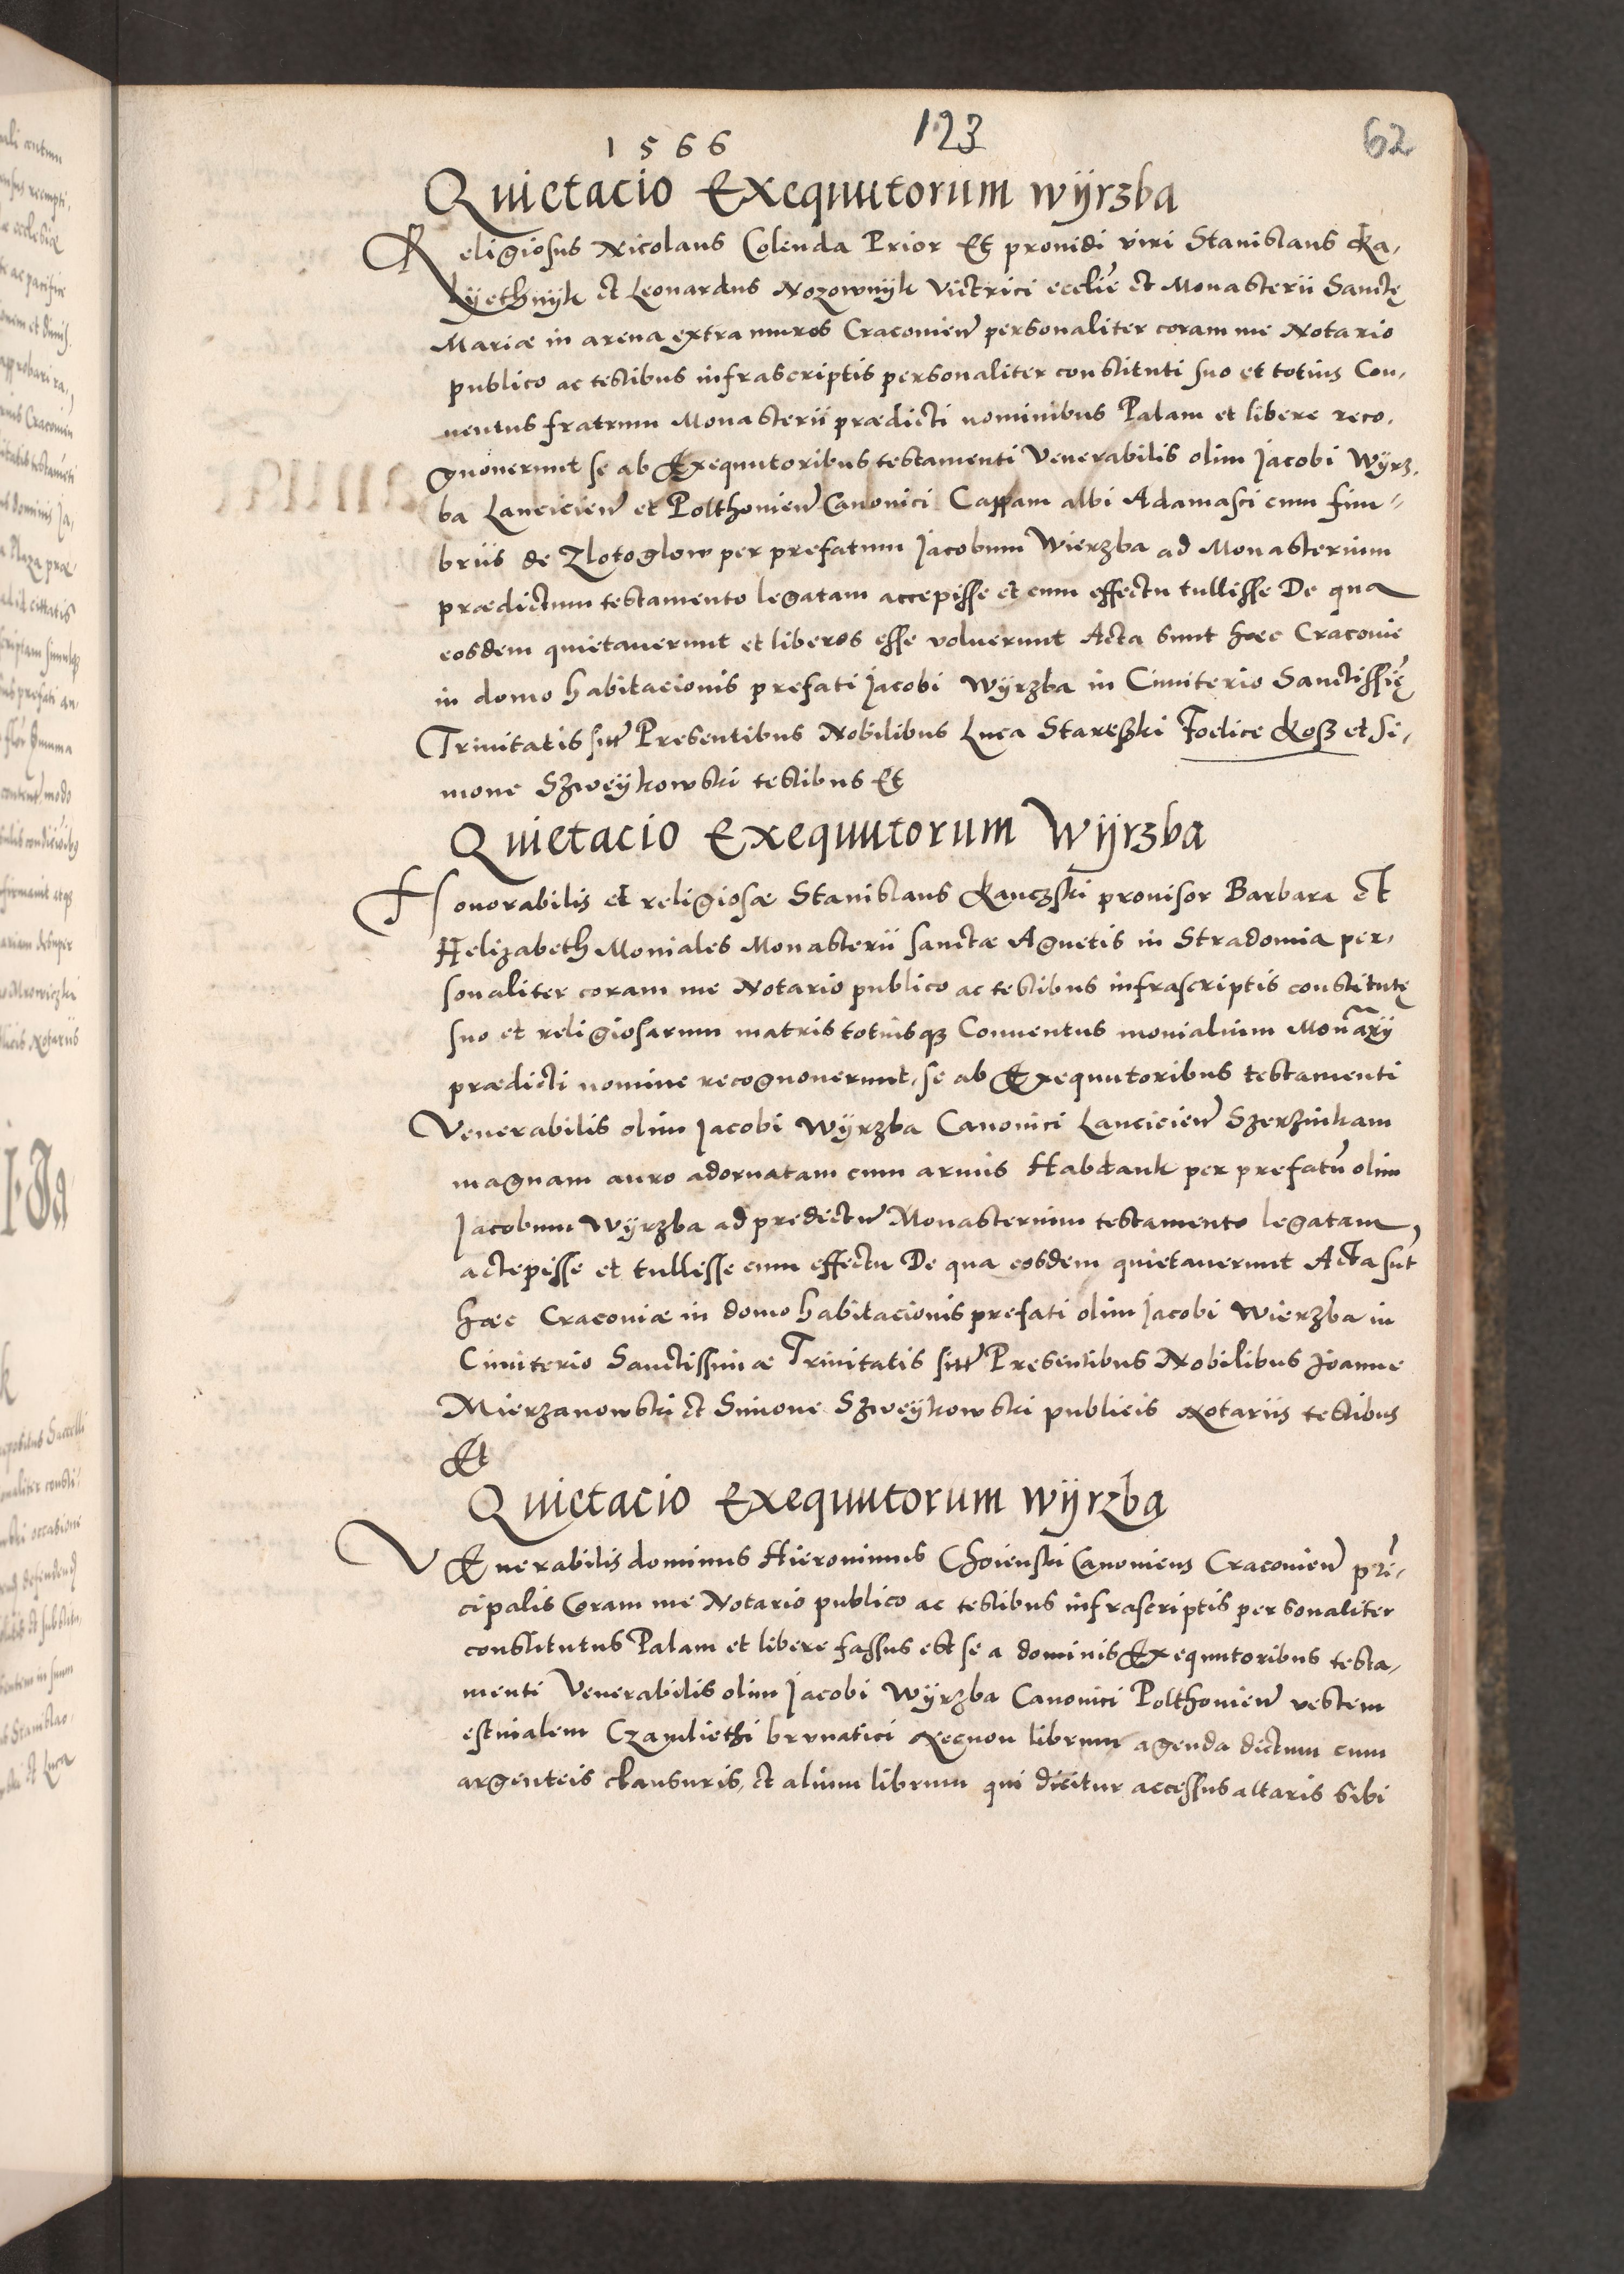 1566 123 62
Quietacio Exequutorum Wÿrzba
Religiosus Nicolaus Colenda Prior Et prouidi viri Stanislaus Ka,
lÿethnÿk et Leonardus Nozownÿk Victrici ecclie et Monasterii Sanctę
Mariæ in arena extra muros Cracouien personaliter coram me Notario
publico ac testibus infrascriptis personaliter constituti suo et totius Con,
uentus fratrum Monasterii prædicti nominibus Palam et libere reco,
gnouerunt se ab Exequutoribus testamenti Venerabilis olim Jacobi Wÿrz,
ba Lancicien et Polthouien Canonici Cappam albi Adamasci cum fim-
briis de Zlotoglow per prefatum Jacobum Wierzba ad Monasterium
prædictum testamento legatam accepisse et cum effectu tullisse De qua
eosdem quietauerunt et liberos esse voluerunt Acta sunt hæc Cracouie
in domo habitacionis prefati Jacobi Wÿrzba in Cimiterio Sanctissię
Trinitatis sitt Presentibus Nobilibus Luca Staresski Foelice Kosz et Si,
mone Szweÿkowski testibus Et
Quietacio Exequutorum Wÿrzba
Honorabilis et religiosæ Stanislaus Kanczski prouisor Barbara Et
Helizabeth Moniales Monasterii sanctæ Agnetis in Stradomia per,
sonaliter coram me Notario publico ac testibus infrascriptis constitutę
suo et religiosarum matris totiusq Conuentus monialium Monarÿ
prædicti nomine recognouerunt, se ab Exequutoribus testamenti
Venerabilis olim Jacobi Wÿrzba Canonici Lancicien Szerzinkam
magnam auro adornatam cum armis Habdank per prefatu olim
Jacobum Wÿrzba ad predictu Monasterium testamento legatam,
actepisse et tullisse cum effectu De qua eosdem quietauerunt Acta sut
hæc Cracouiæ in domo habitacionis prefati olim Jacobi Wierzba in
Cimiterio Sanctissimæ Trinitatis sitt Presentibus Nobilibus Joanne
Mierzanowski et Simone Szweÿkowski publicis Notariis testibus
Et
Quietacio Exequutorum Wÿrzba
VEnerabilis dominus Hieronimus Choienski Canonicus Cracouien pri,
cipalis Coram me Notario publico ac testibus infrascriptis personaliter
constitutus Palam et libere fassus est se a dominis Exequutoribus testa,
menti Venerabilis olim Jacobi Wÿrzba Canonici Polthouien vestem
estiualem Czamliethi brunatici Necnon librum agenda dictum cum
argenteis clausuris, et alium librum qui dicitur accessus altaris sibi